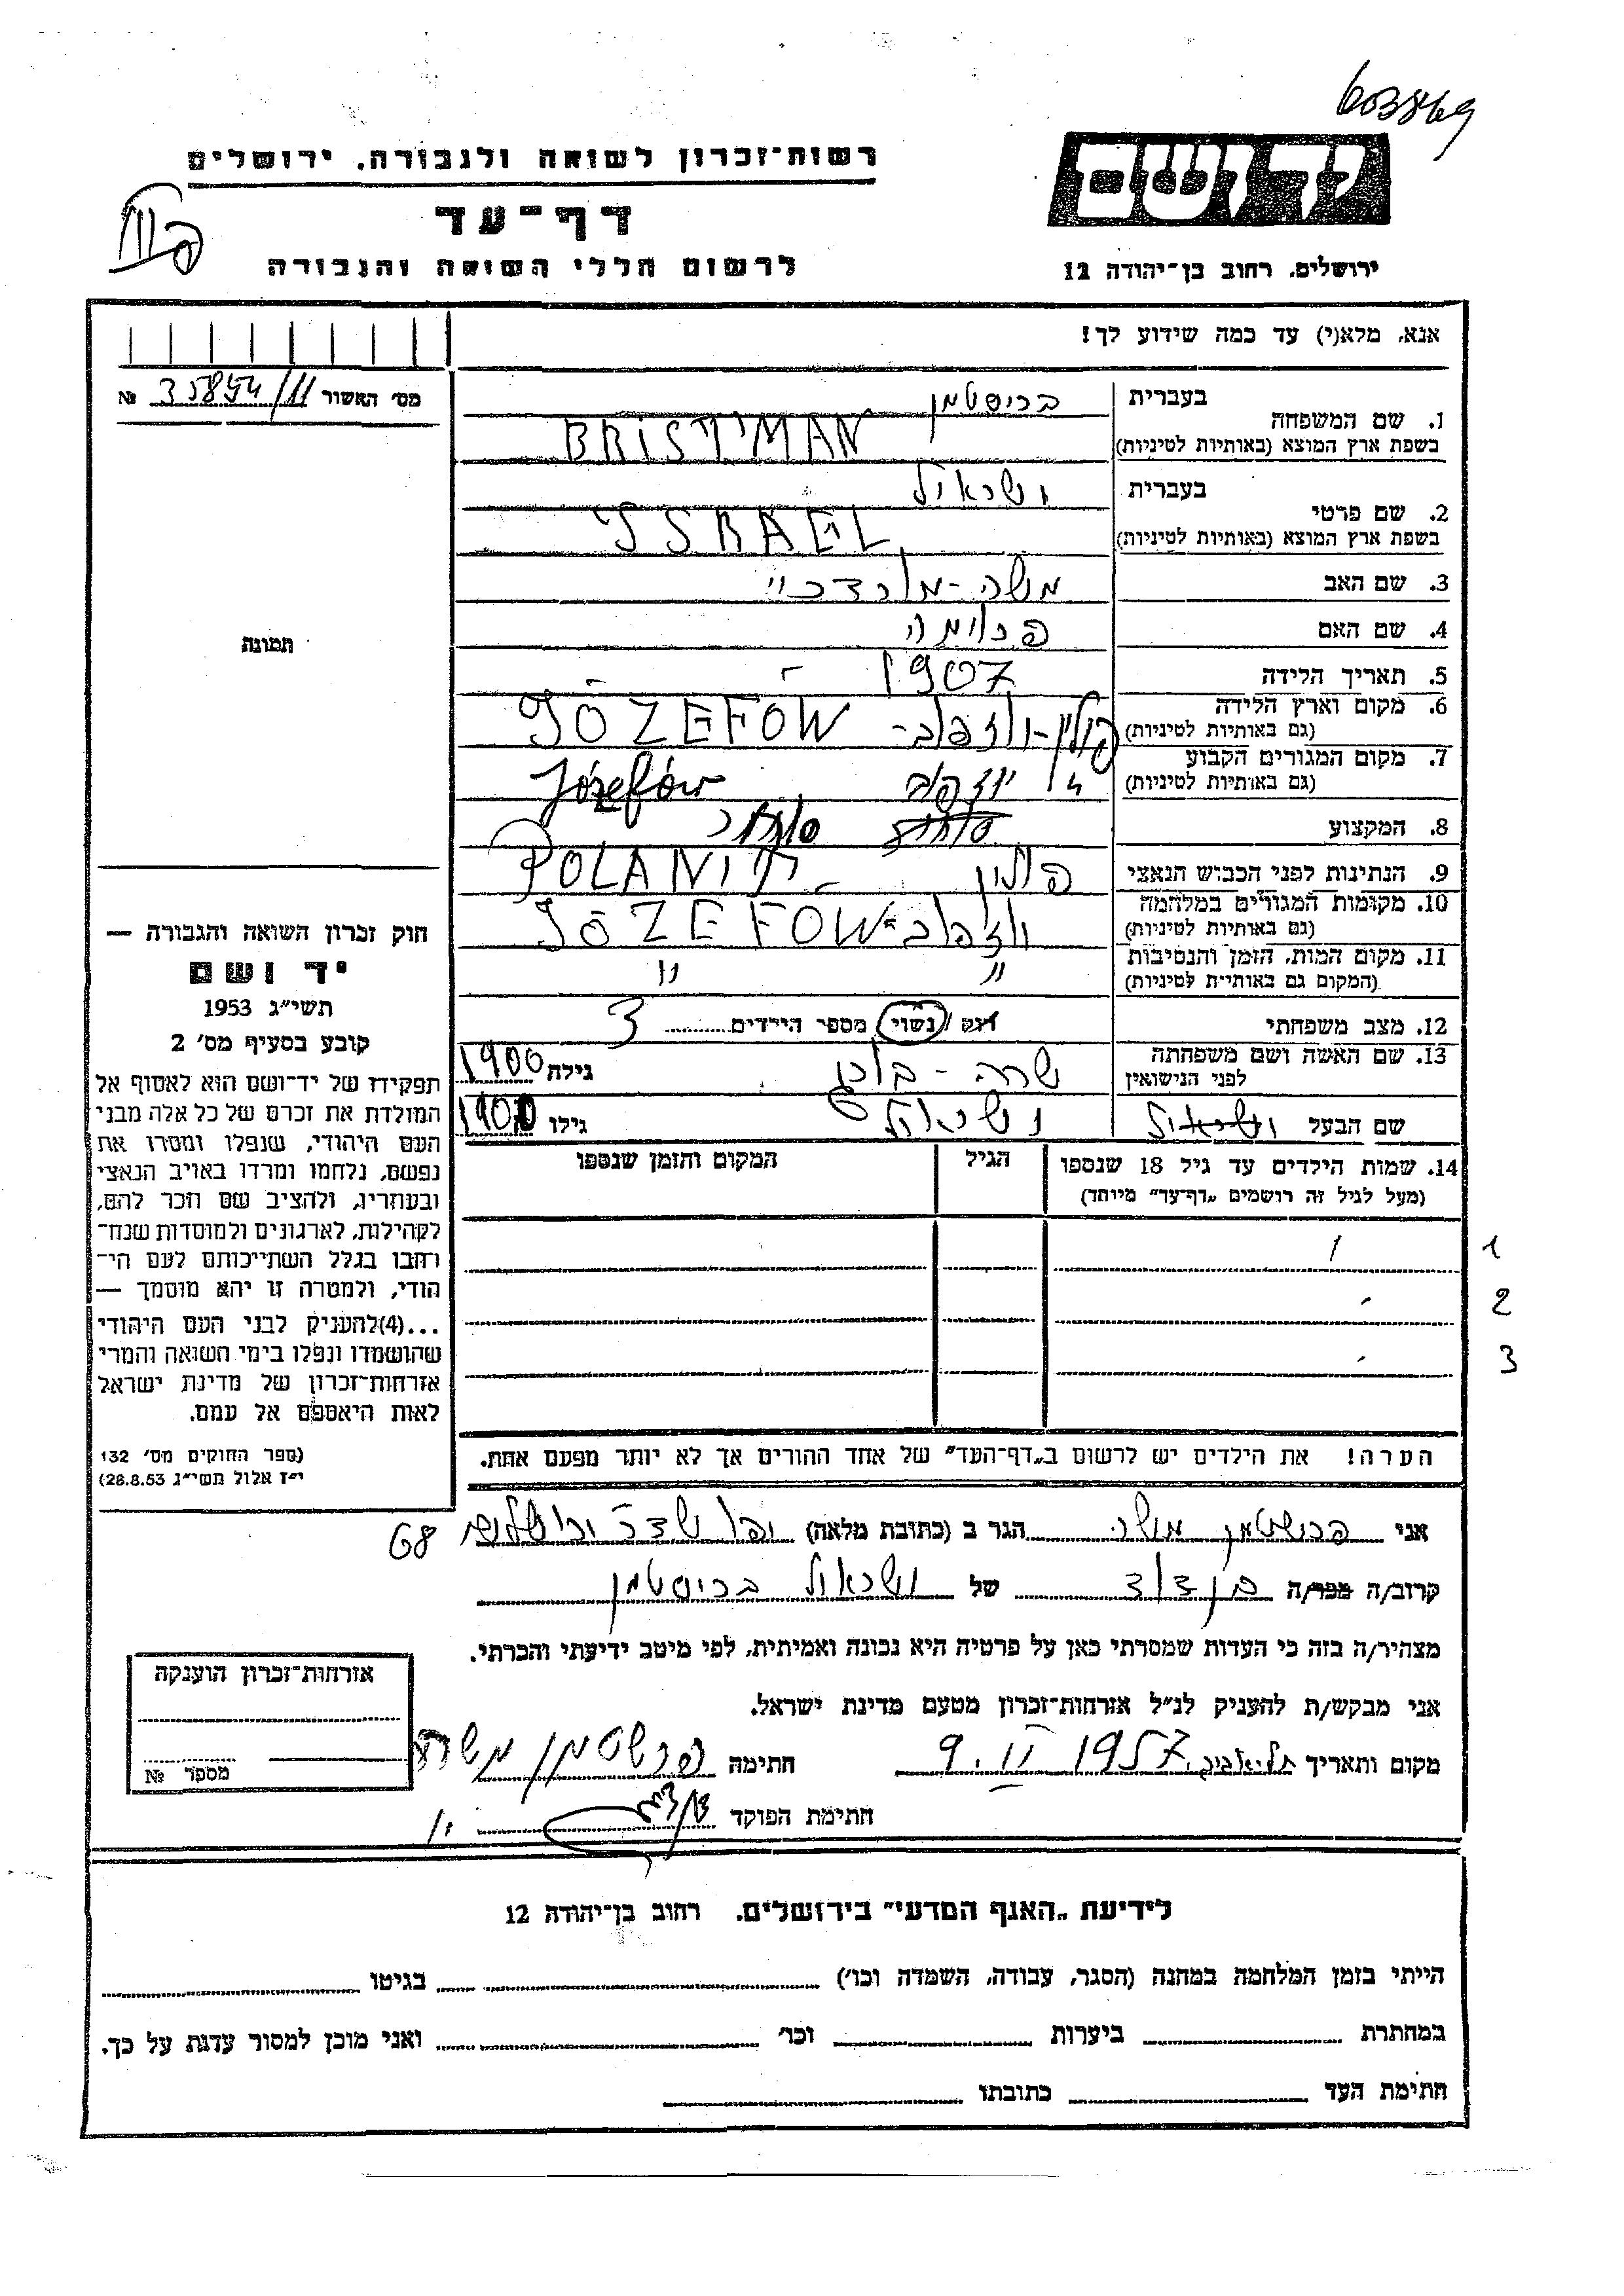 603869
רשות־זכרון לשואה ולגבורה, ירושלים
יד ושם
דף־עד
לרשום חללי השואה והגבורה
ירושלים, רחוב בן־יהודה 12
אנא, מלא(י) עד כמה שידוע לך!
מס׳ האשור 35854/11 №
1. שם המשפחה
בעברית בריסטמן
בשפת ארץ המוצא (באותיות לטיניות) BRISTMAN
2. שם פרטי
בעברית ישראול
בשפת ארץ המוצא (באותיות לטיניות) ISRAEL
3. שם האב משה-מורדכי
4. שם האם פרומה
5. תאריך הלידה 1907
6. מקום וארץ הלידה
(גם באותיות לטיניות) פולין-יוזפוב- JÓZEFÓW
7. מקום המגורים הקבוע
(גם באותיות לטיניות) יוזפוב Józefów
8. המקצוע סוחר סוחר
9. הנתינות לפני הכבוש הנאצי פולין POLANIT
10. מקומות המגורים במלחמה
(גם באותיות לטיניות) יוזפוב-JÓZEFÓW
11. מקום המות, הזמן והנסיבות
(המקום גם באותיות לטיניות) " "
12. מצב משפחתי רוק/נשוי, מספר הילדים 3
13. שם האשה ושם משפחתה
לפני הנישואין שרה - גילה 1900
שם הבעל ישראול ישראול גילו 1900
14. שמות הילדים עד גיל 18 שנספו
(מעל לגיל זה רושמים „דף־עד״ מיוחד)
הגיל
המקום והזמן שנספו
1
2
3
הערה! את הילדים יש לרשום ב„דף־העד״ של אחד ההורים אך לא יותר מפעם אחת.
תמונה
חוק זכרון השואה והגבורה —
יד ושם
תשי״ג 1953
קובע בסעיף מס׳ 2
תפקידו של יד־ושם הוא לאסוף אל
המולדת את זכרם של כל אלה מבני
העם היהודי, שנפלו ומסרו את
נפשם, נלחמו ומרדו באויב הנאצי
ובעוזריו, ולהציב שם וזכר להם,
לקהילות, לארגונים ולמוסדות שנח־
רבו בגלל השתייכותם לעם הי־
הודי, ולמטרה זו יהא מוסמך —
...(4)להעניק לבני העם היהודי
שהושמדו ונפלו בימי השואה והמרי
אזרחות־זכרון של מדינת ישראל
לאות היאספם אל עמם.
(ספר החוקים מס׳ 132
י״ז אלול תשי״ג 28.8.53)
אני ברישטמן משה הגר ב (כתובת מלאה) 68
קרוב/ה מכר/ה בן דוד של ישראול בריסטמן
מצהיר/ה בזה כי העדות שמסרתי כאן על פרטיה היא נכונה ואמיתית, לפי מיטב ידיעתי והכרתי.
אני מבקש/ת להעניק לנ״ל אזרחות־זכרון מטעם מדינת ישראל.
מקום ותאריך תל-אביב, 9.II 1957 חתימה ברשטמן משה
חתימת הפוקד
אזרחות־זכרון הוענקה
מספר №
לידיעת „האגף המדעי״ בירושלים. רחוב בן־יהודה 12
הייתי בזמן המלחמה במחנה (הסגר, עבודה, השמדה וכו׳) בגיטו
במחתרת ביערות וכו׳ ואני מוכן למסור עדות על כך.
חתימת העד כתובתו